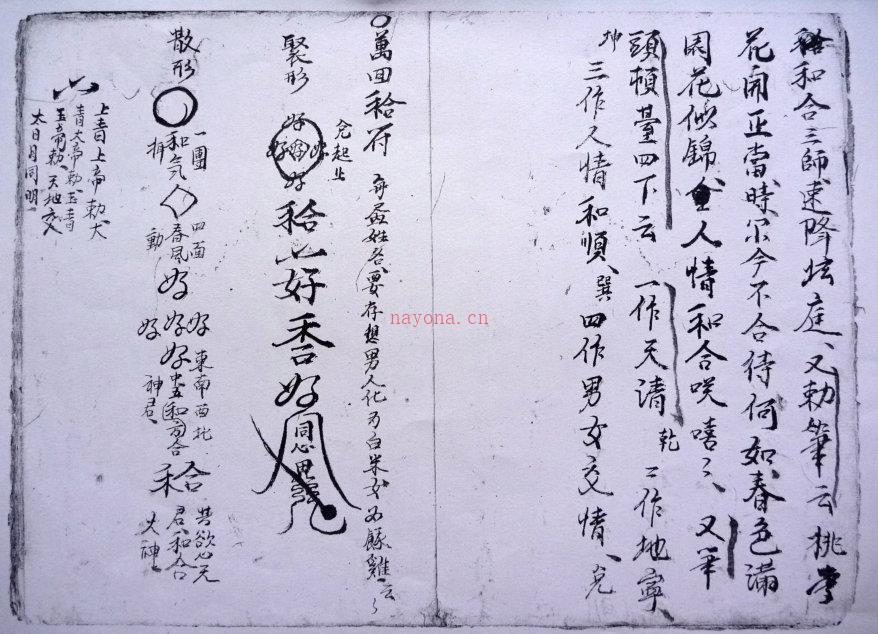 和合三師速降坛庭、又勅筆云桃李
花開正當時尔今不合待何如、春色滿
園花似錦、人情和合咲嘻〻、又筆
頭頓臺四下云 一作天清 乾 二作地寧
坤 三作人情和順、巽 四作男女交情、兌
萬回秴符 姓名要存想男人化为白米女为雞云〻
兌起止
聚形 好 好 好 好 好 秴 好 香 好 同心
散形 一團和气 四面春風 動 好 好 好 好 好 東南西北 神君、 和合 秴 共 心 君和合 大神
上青上帝勅大
青大帝勅玉青
玉帝勅、天地交
太日月同明
nayona.cn